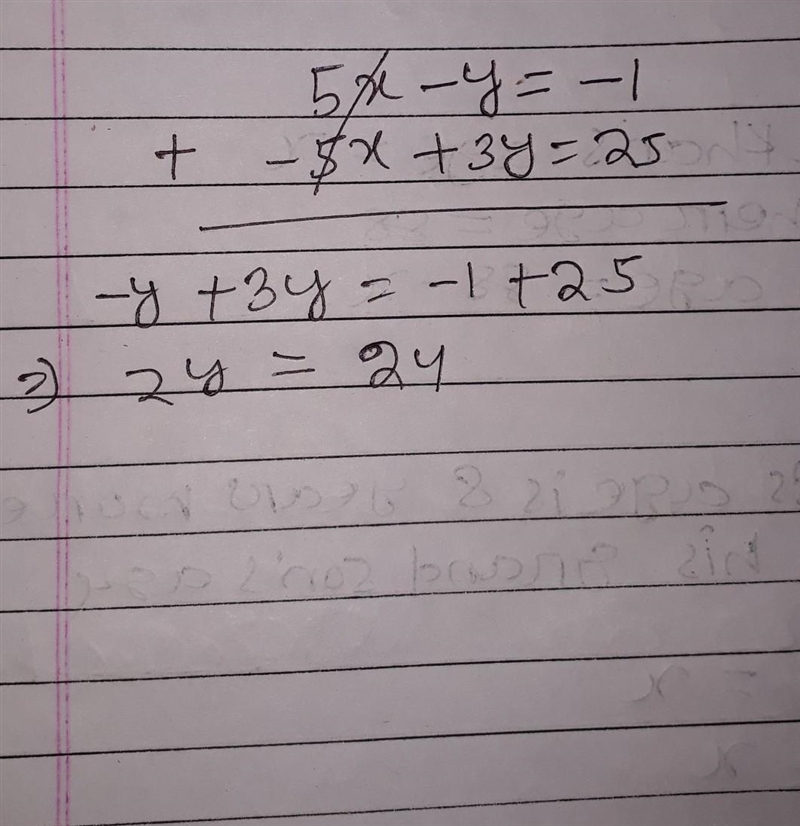 5x - y = -1
+ -5x + 3y = 25
-y + 3y = -1 + 25
⇒ 2y = 24